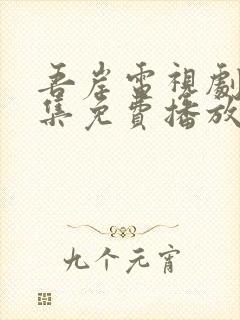 吾岸雷視劇
集免費播放
九个元宵